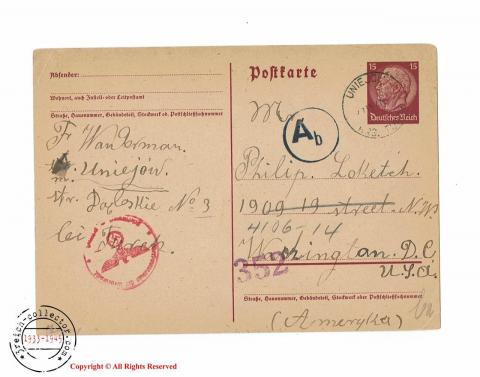 Absender:
Wohnort, auch Zustell- oder Leitpostamt
Straße, Hausnummer, Gebäudeteil, Stockwerk od. Postschließfachnummer
Fr. Wandorman.
m. Uniejów.
str. Dąbskie No 3
bei Turek.
Postkarte
15 15
Deutsches Reich
UNIEJ
Mr.
Ab
Philip. Loketch.
1909 19 street. N.W.
4106-14
Washington. D.C.
U.S.A.
352
Straße, Hausnummer, Gebäudeteil, Stockwerk oder Postschließfachnummer
(Ameryka)
3reich-collector.com
1933-1945
Copyright © All Rights Reserved